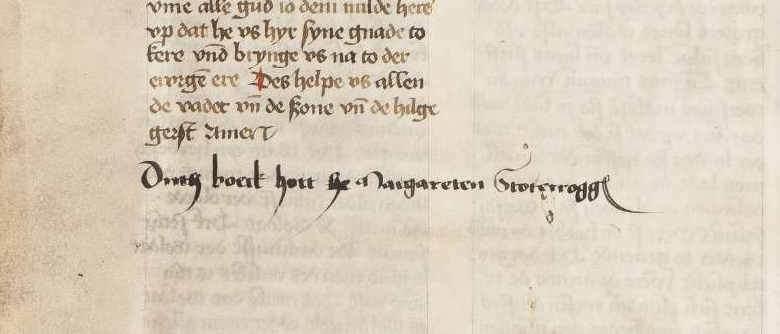 vme alle gud to dem milde here
vp dat he vs hyr syne gnade to
kere vnd brynge vs na to der
ewygē ere Des helpe vs allen
de vader vn̄ de sone vn̄ de hilge
geyst Amen
boeck hort Margareten